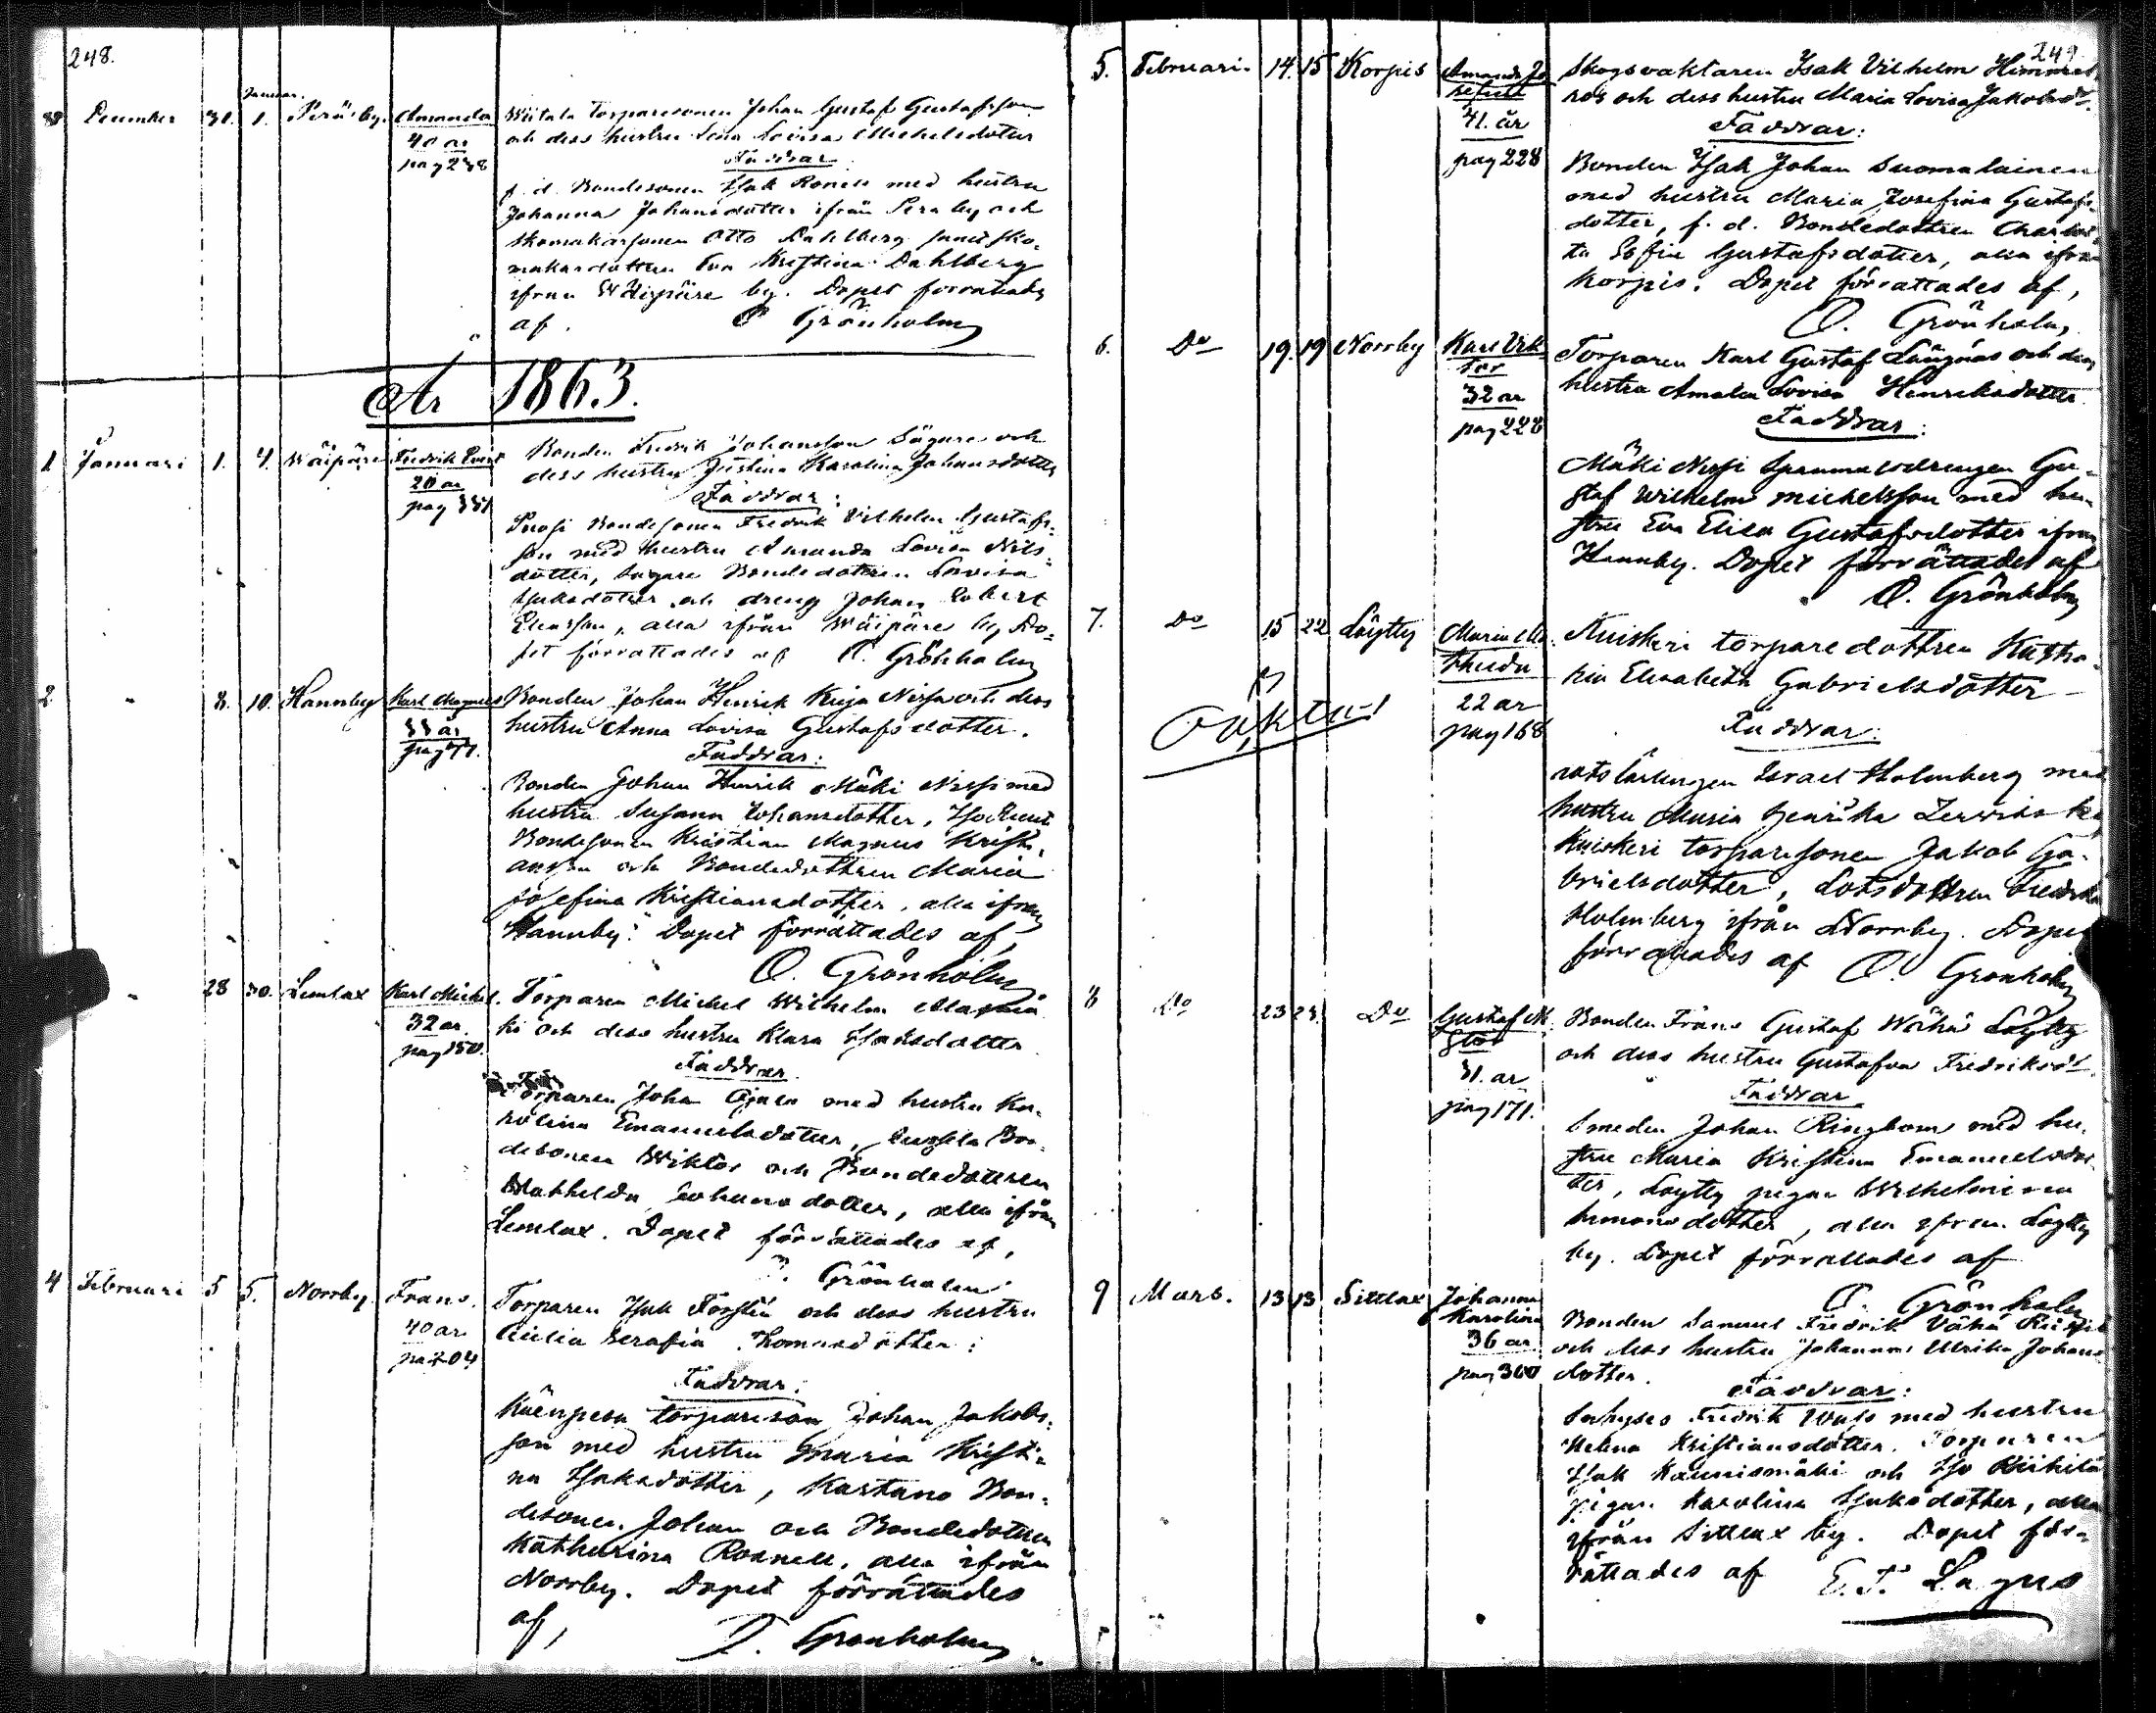 248.
Januar.
December 31. 1. Peräby. Amanda Wiitala Torparesonen Johan Gustaf Gustafsson
40 år och dess hustru Lena Lovisa Michelsdotter
pag 238 Faddrar
f. d. Bondesonen Isak Ronell med hustru
Johanna Johansdotter ifrån Peräby och
skomakarsonen Otto Dahlberg samt sko-
makardottren Eva Kristina Dahlberg
ifrån Wäipäre by. Dopet förrattades
af. O Grönholm
År 1863.
1 Januari 1. 4. Wäipäre Fredrik Bonden Fredrik Johansson Sägare och
20 år dess hustru Justina Karolina Johansdotter
pag 331 Faddrar:
Bondesonen Fredrik Vilhelm Gustafs-
son med hustru Amanda Lovisa Nils-
dotter, Sägare Bondedottren Lovisa
Isaksdotter och dreng Johan Robert
Eliasson, alla ifrån Wäipäre by Do-
pet förrattades af O. Grönholm
2. " 8. 10. Hannby Karl Magnus Bonden Johan Henrik Kuja Nissi och dess
33 år hustru Anna Lovisa Gustafsdotter.
pag 77. Faddrar:
Bonden Johan Henrik Mäki Nissi med
hustru Susanna Johansdotter,
Bondesonen Kristian Magnus Kristi-
ansson och Bondedottren Maria
Josefina Kristiansdotter, alla ifrån
Hannby. Dopet förrättades af,
O. Grönholm
" 28 30. Lemlax Karl Michel. Torparen Michel Wilhelm
32 år. ki och dess hustru Klara Isaksdotter
pag 150. Faddrar
Torparen Johan med hustru Ka-
rolina Emanuelsdotter, Bon-
desonen Wiktor och Bondedottren
Mathilda Johansdotter, alla ifrån
Lemlax. Dopet förrättades af,
O. Grönholm
4 Februari 5 5. Norrby. Frans. Torparen Isak Forstén och dess hustru
40 år. Cicilia Serafia Thomasdotter:
pa 204 Faddrar:
Käenpesä torpareson Johan Jakobs-
son med hustru Maria Kristi-
na Isaksdotter, Kartano Bon-
desonen Johan och Bondedottren
Katharina Roanell, alla ifrån
Norrby. Dopet förrättades
af, O. Grönholm
249.
5. Februari. 14. 15 Korpis Amanda Jo Skogsvaktaren Isak Vilhelm Himmel
sefina ros och dess hustru Maria Lovisa Jakobsdr.
41. år Faddrar:
pag 228 Bonden Isak Johan Suomalainen
med hustru Maria Josefina Gustafs-
dotter, f. d. Bondedottren Charlot-
ta Sofia Gustafsdotter, alla ifrån
Korpis. Dopet förrattades af,
O. Grönholm
6. Do 19. 19 Norrby Karl Vik Torparen Karl Gustaf Långnäs och dess
tor hustru Amalia Lovisa Henriksdotter
32 år Faddrar:
pag 228 Mäki Nissi Spanmålsdrengen Gu-
staf Wilhelm Michelsson med hu-
stru Eva Elisa Gustafsdotter ifrån
Hannby. Dopet förrättades af
O. Grönholm
7. Do 15 22 Löytty Maria Ma Kuiskeri torparedottren Katha-
thilda rina Elisabeth Gabrielsdotter
22 år Faddrar:
pag 168 Oäkta!
rotslärlingen Israel Holmberg med
hustru Maria Henrika
Kuiskeri torparesonen Jakob Ga-
brielsdotter, Lotsdottren Fredrika
Holmberg ifrån Norrby. Dopet
förrattades af O. Grönholm
8 Do 23 23. Do Gustaf Bonden Frans Gustaf Wähä Löytty
31. år och dess hustru Gustafva Fredriksdr.
pag 171. Faddrar
Smeden Johan Ringbom med hu-
stru Maria Kristina Emanuelsdot-
ter, Löytty pigan Wilhelmina
Simonsdotter, alla ifrån Löytty
by. Dopet förrattades af
O. Grönholm
9 Mars. 13 13 Sittlax Johanna Bonden Samuel Fredrik Vähä
Karolina och dess hustru Johanna Ulrika Johans
36 år dotter.
pag 300 Faddrar:
Inhyses Fredrik med hustru
Helena Kristiansdotter. Torparen
Isak Kaunismäki och Iso
pigan Karolina Isaksdotter, alla
ifrån Sittlax by. Dopet för-
rättades af E. F. Lagus